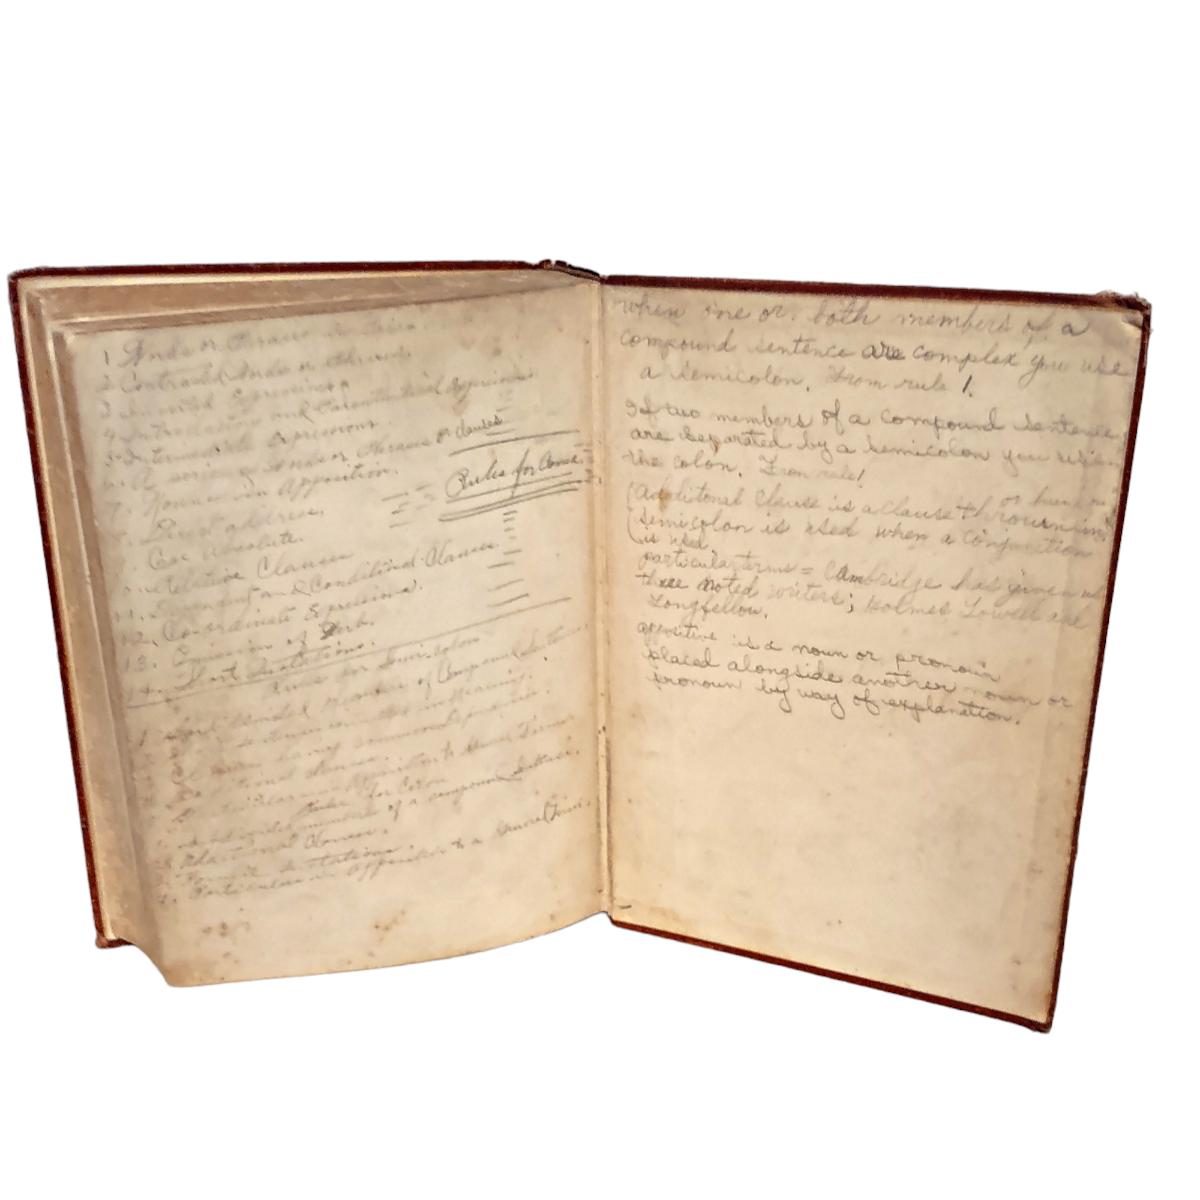 1. Words or Phrases in Pairs.
2. Contrasted Words or Phrases.
3. Inverted Expressions
4. Introductory and Parenthetical Expressions.
5. Intermediate Expressions.
6. A series of Words or Phrases or clauses
7. Nouns in Apposition.
Rules for Coma
8. Direct address.
9. Case Absolute.
10. Relative Clauses
11. Dependent and Conditional Clauses.
12. Co-ordinate Expressions.
13. Omission of Verb.
14. Short Quotations.
Rules for Semi-colon
1. members of Compound Sentence
2. in Meaning.
3. having common Dependence.
4. Additional clauses.
5. Particulars in Apposition to General Terms
Rules for Colon
1. members of a compound Sentence.
2. Additional Clauses.
3. Quotations.
4. Particulars in Apposition to a General Term.
when one or both members of a
compound sentence are complex you use
a semicolon. From rule 1.
If two members of a compound sentence
are separated by a semicolon you use
the colon. From rule 1
(Additonal Clause is a clause thrown in.
(Semicolon is used when a conjunction
(is used.
particular terms = Cambridge has given us
three noted writers; Holmes Lowell and
Longfellow.
appositive is a noun or pronoun
placed alongside another noun or
pronoun by way of explanation.